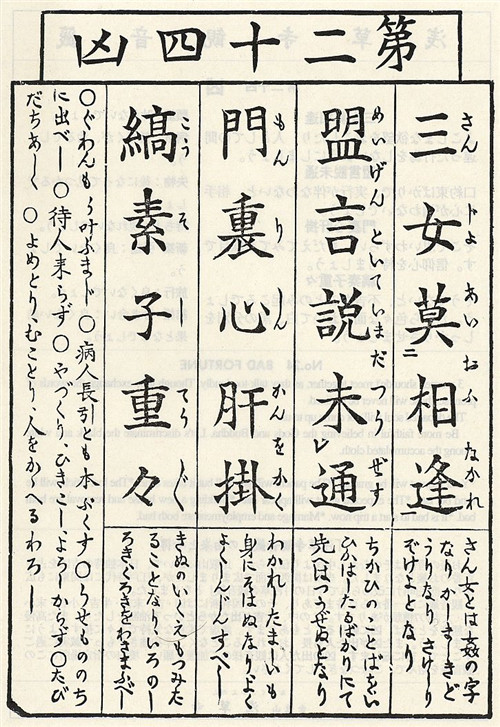 第二十四凶
三女莫ニ相逢
さん じよ あい おふ なかれ
さん女とは姦の字
うりなり
ぞけよとなり
盟言説未レ通
めいげんといてまだ つうぜず
ちかひのことばをい
ひかはしたるばかりにて
先へはつうぜぬとなり
門裏心肝掛
もん り しん かんをかく
わかれしたましいも
身にそはぬなりよく
しんじんすべし
縞素子重々
こう そ てう〴〵
きぬのいと
るごとくなり いろのし
ろきくろきをわきまふべし
○ぐわんもう叶ふまじ ○病人長引とも本ぶくす ○うせものゝち
に出べし ○待人来らず ○やづくりひきこしよろからず ○たび
だちあしく ○よめとりむことり人をかゝへるわろし